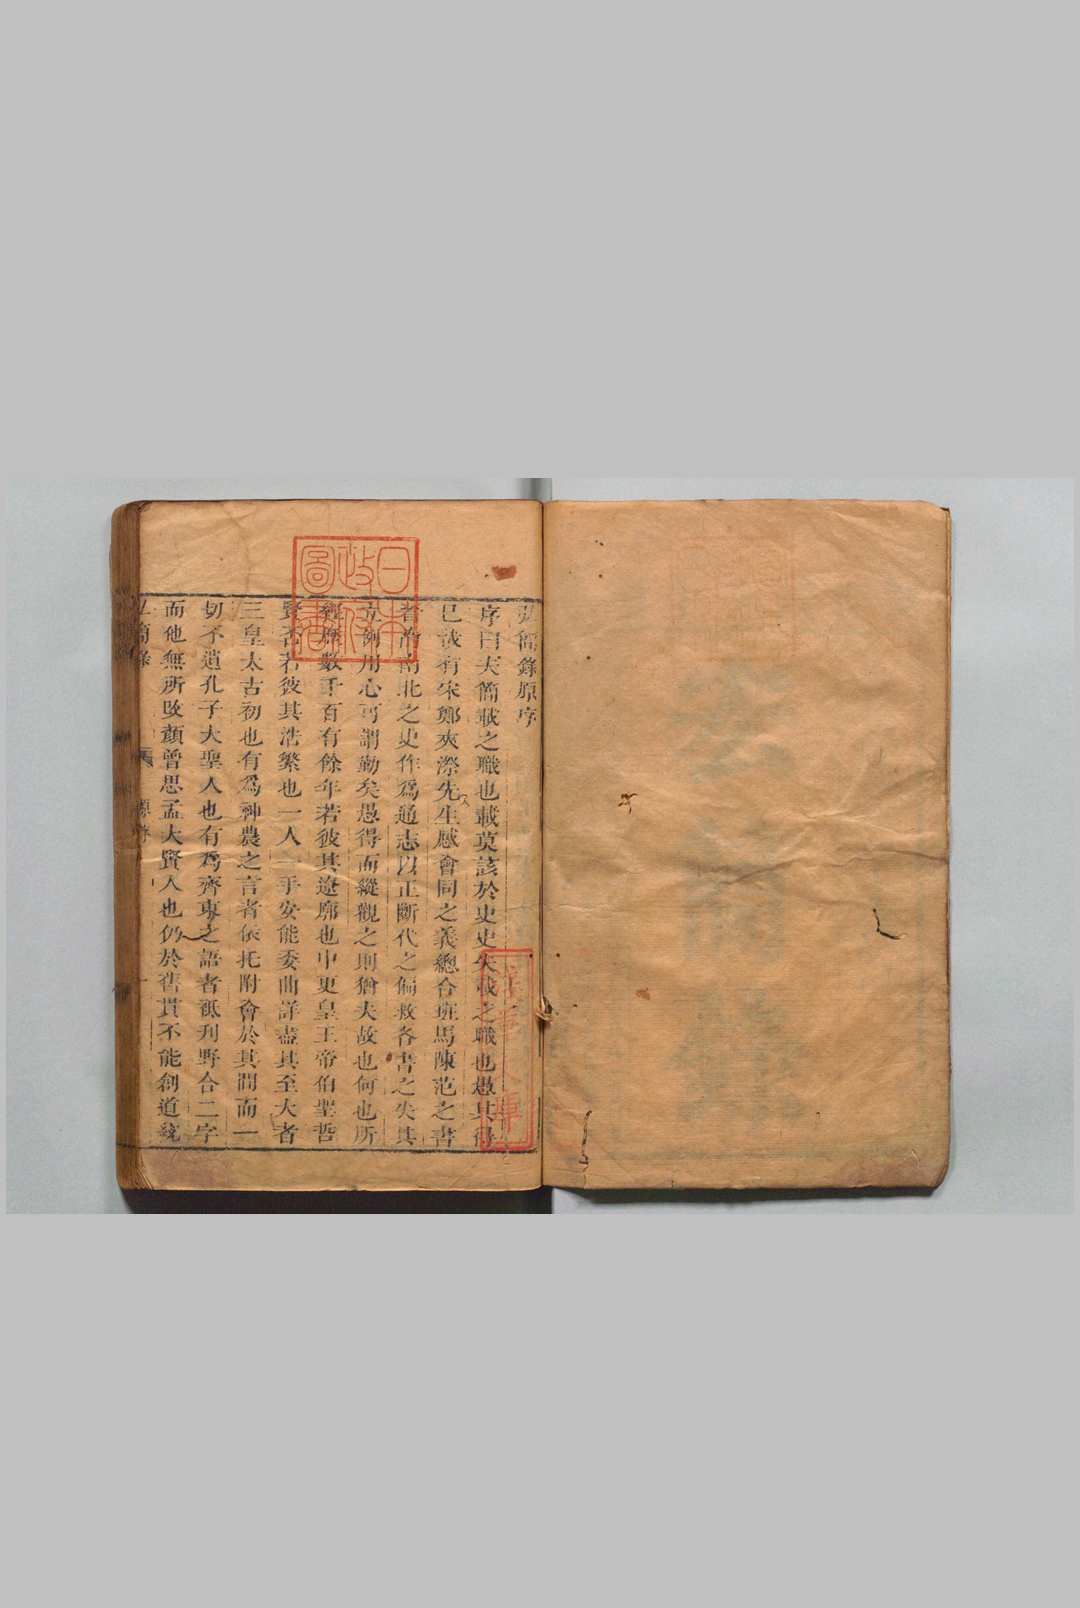 弘簡錄原序
序曰夫簡載之職也載莫該於史史失載之職也愚其得
已哉有宋鄭夾漈先生感會同之義總合班馬陳范之書
者洎南北之史作爲通志以正斷代之偏救各書之失其
立例用心可謂勤矣愚得而縱觀之則猶夫故也何也所
經歷數千百有餘年若彼其遼廓也中更皇王帝伯聖哲
賢否若彼其浩繁也一人一手安能委曲詳盡其至大者
三皇太古初也有爲神農之言者依托附會於其間而一
切不遺孔子大聖人也有爲齊東之語者祗刋野合二字
而他無所攷顏曾思孟大賢人也仍於舊貫不能創道統
弘簡錄
原序
一
日本
政府
圖書